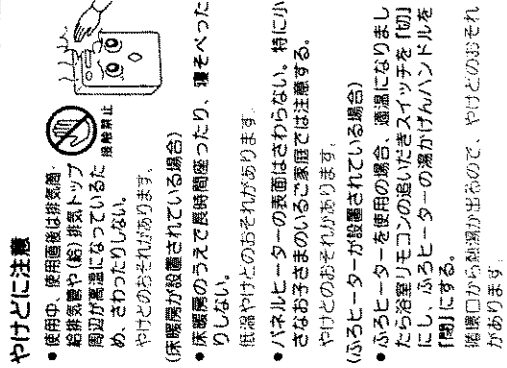 やけどに注意
●使用中、使用直後は排気筒・
給排気管や(給)排気トップ
周辺が高温になっているた
め、さわったりしない。
やけどのおそれがあります。
接触禁止
(床暖房が設置されている場合)
●床暖房のうえで長時間座ったり、寝そべった
りしない。
低温やけどのおそれがあります。
●パネルヒーターの表面はさわらない。特に小
さなお子さまのいるご家庭では注意する。
やけどのおそれがあります。
(ふろヒーターが設置されている場合)
●ふろヒーターを使用の場合、適温になりまし
たら浴室リモコンの追いだきスイッチを「切」
にし、ふろヒーターの湯かげんハンドルを
「閉」にする。
循環口から熱湯が出るので、やけどのおそれ
があります。